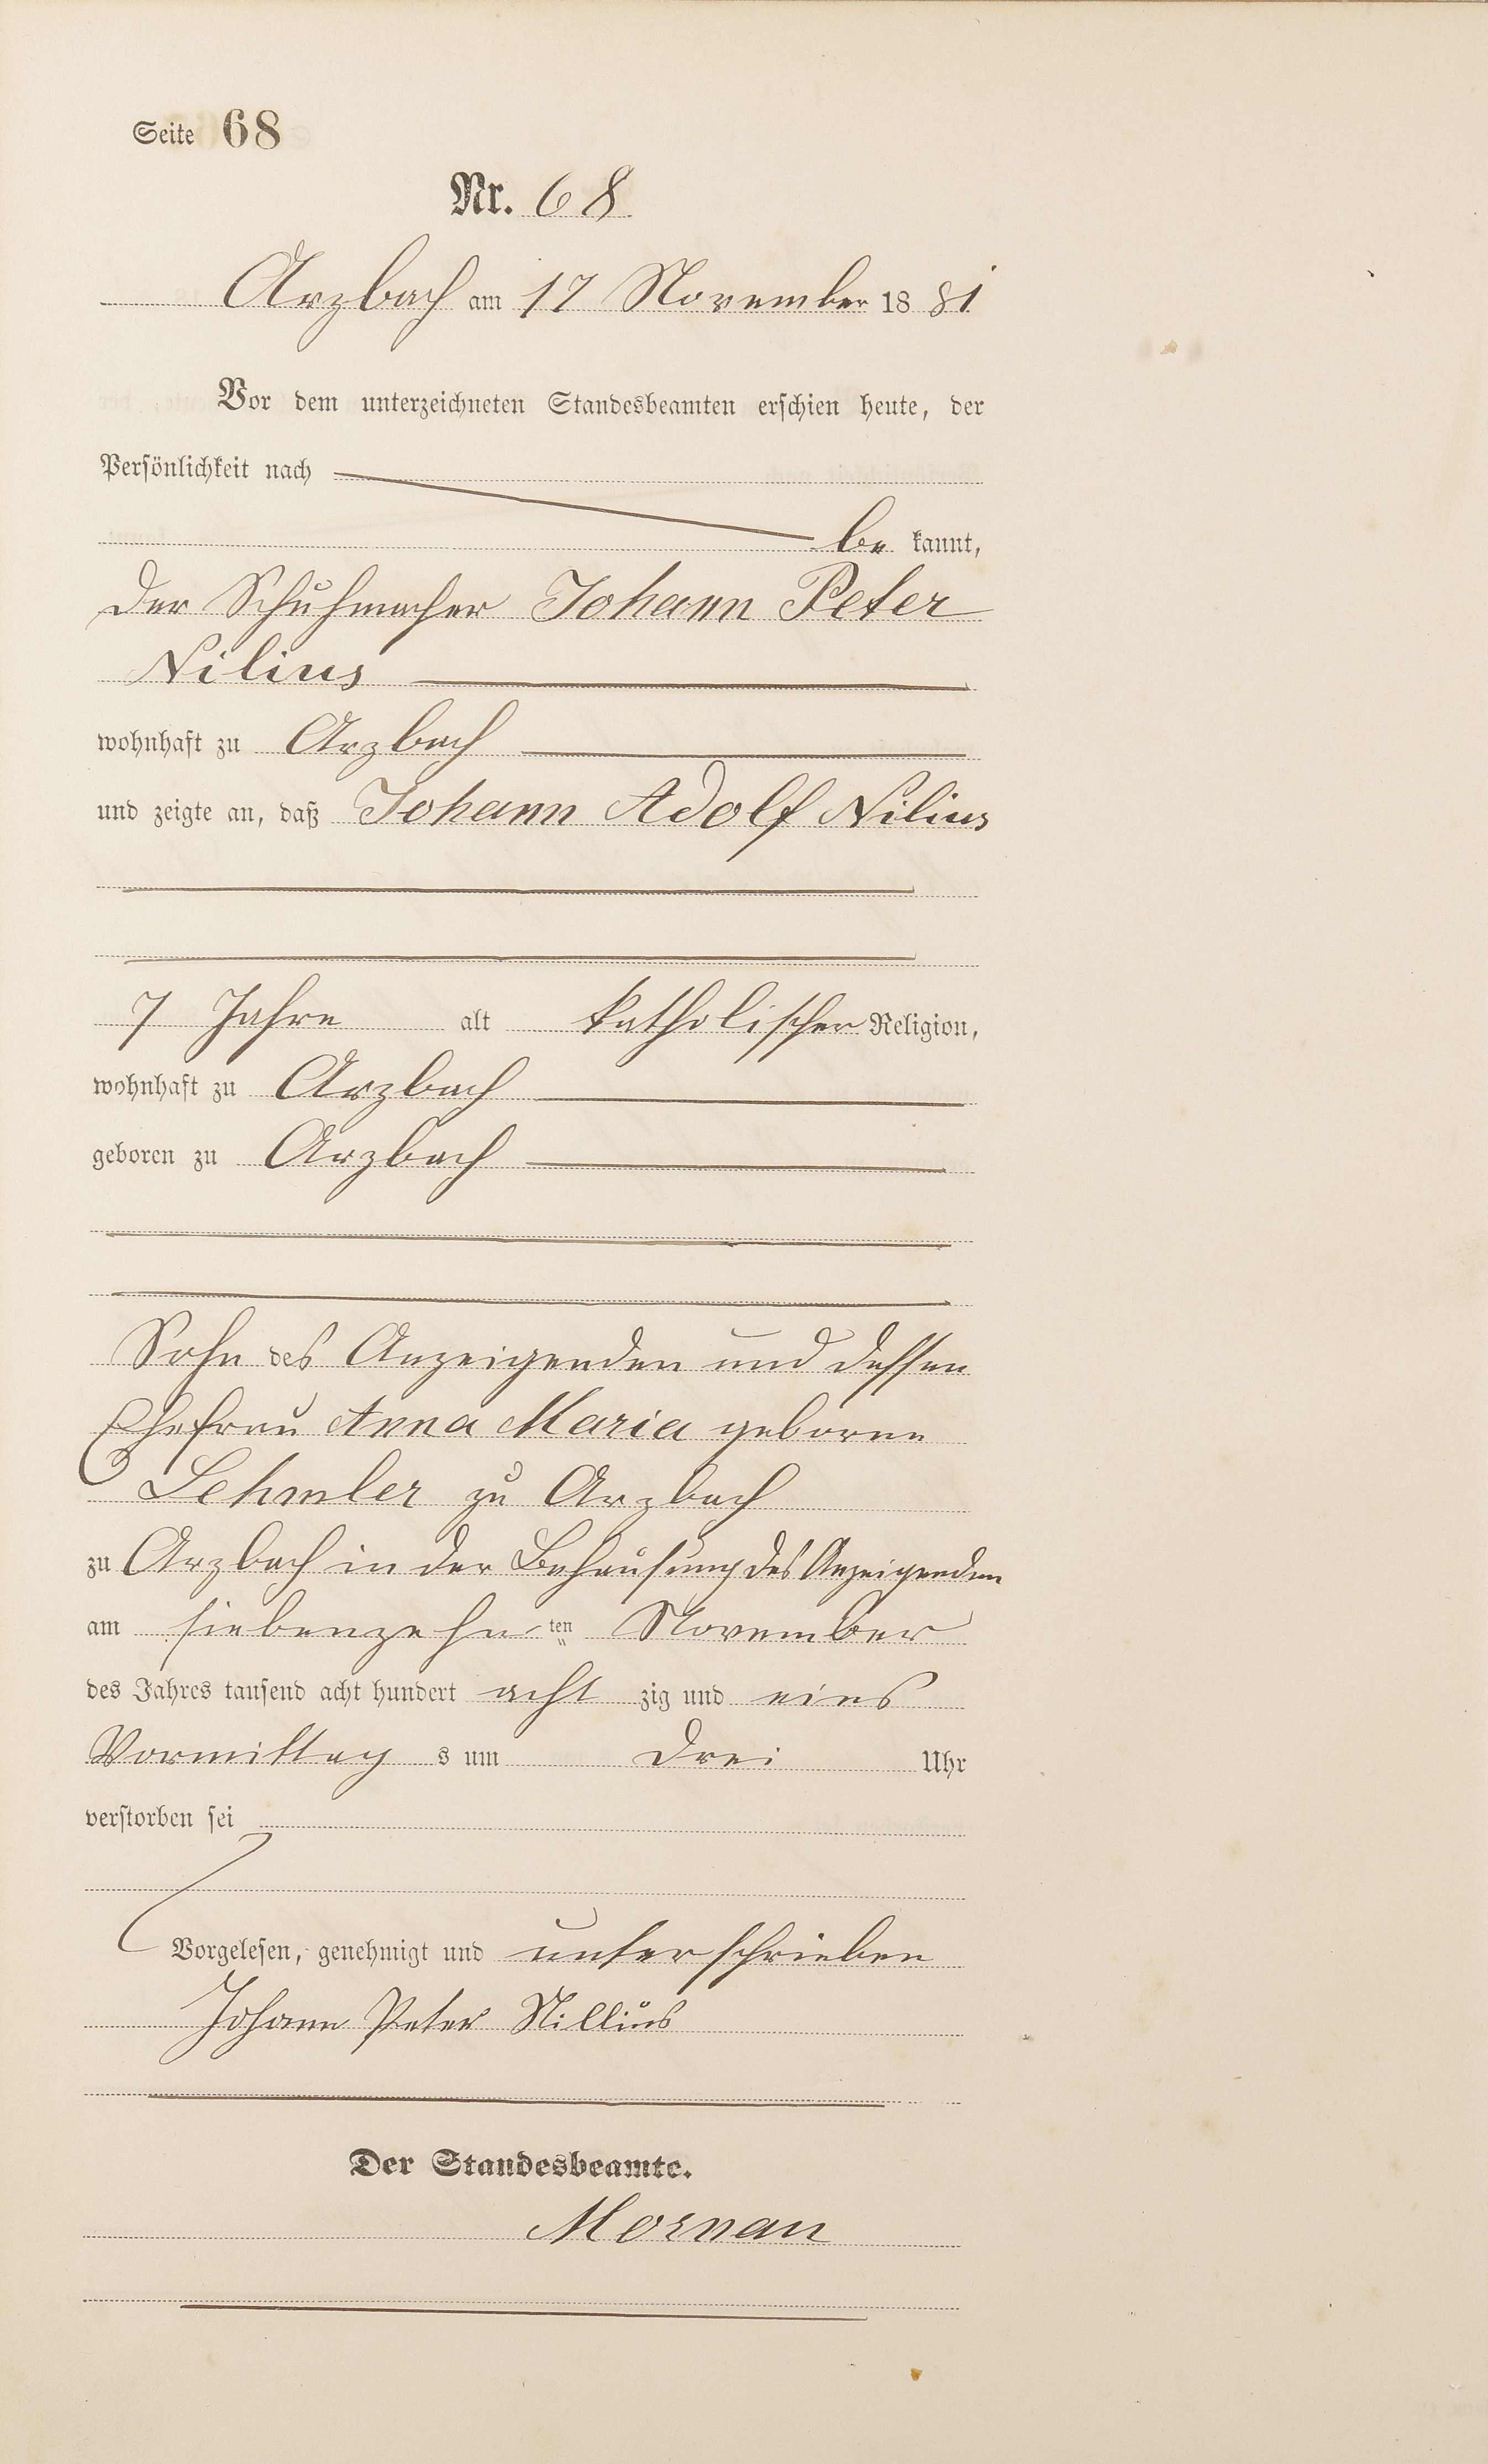 Seite 68
Nr. 68
Arzbach am 17 November 1881
Vor dem unterzeichneten Standesbeamten erschien heute, der
Persönlichkeit nach
be kannt,
der Schuhmacher Johann Peter
Nilius
wohnhaft zu Arzbach
und zeigte an, daß Johann Adolf Nilius
7 Jahre alt katholischer Religion,
wohnhaft zu Arzbach
geboren zu Arzbach
Sohn des Anzeigenden und dessen
Ehefrau Anna Maria geborne
Lehmler zu Arzbach
zu Arzbach in der Behausung des Anzeigenden
am siebenzehnten November
des Jahres tausend acht hundert acht zig und eins
Vormittag s um drei Uhr
verstorben sei
Vorgelesen, genehmigt und unterschrieben
Johann Peter Nillius
Der Standesbeamte.
Mornau